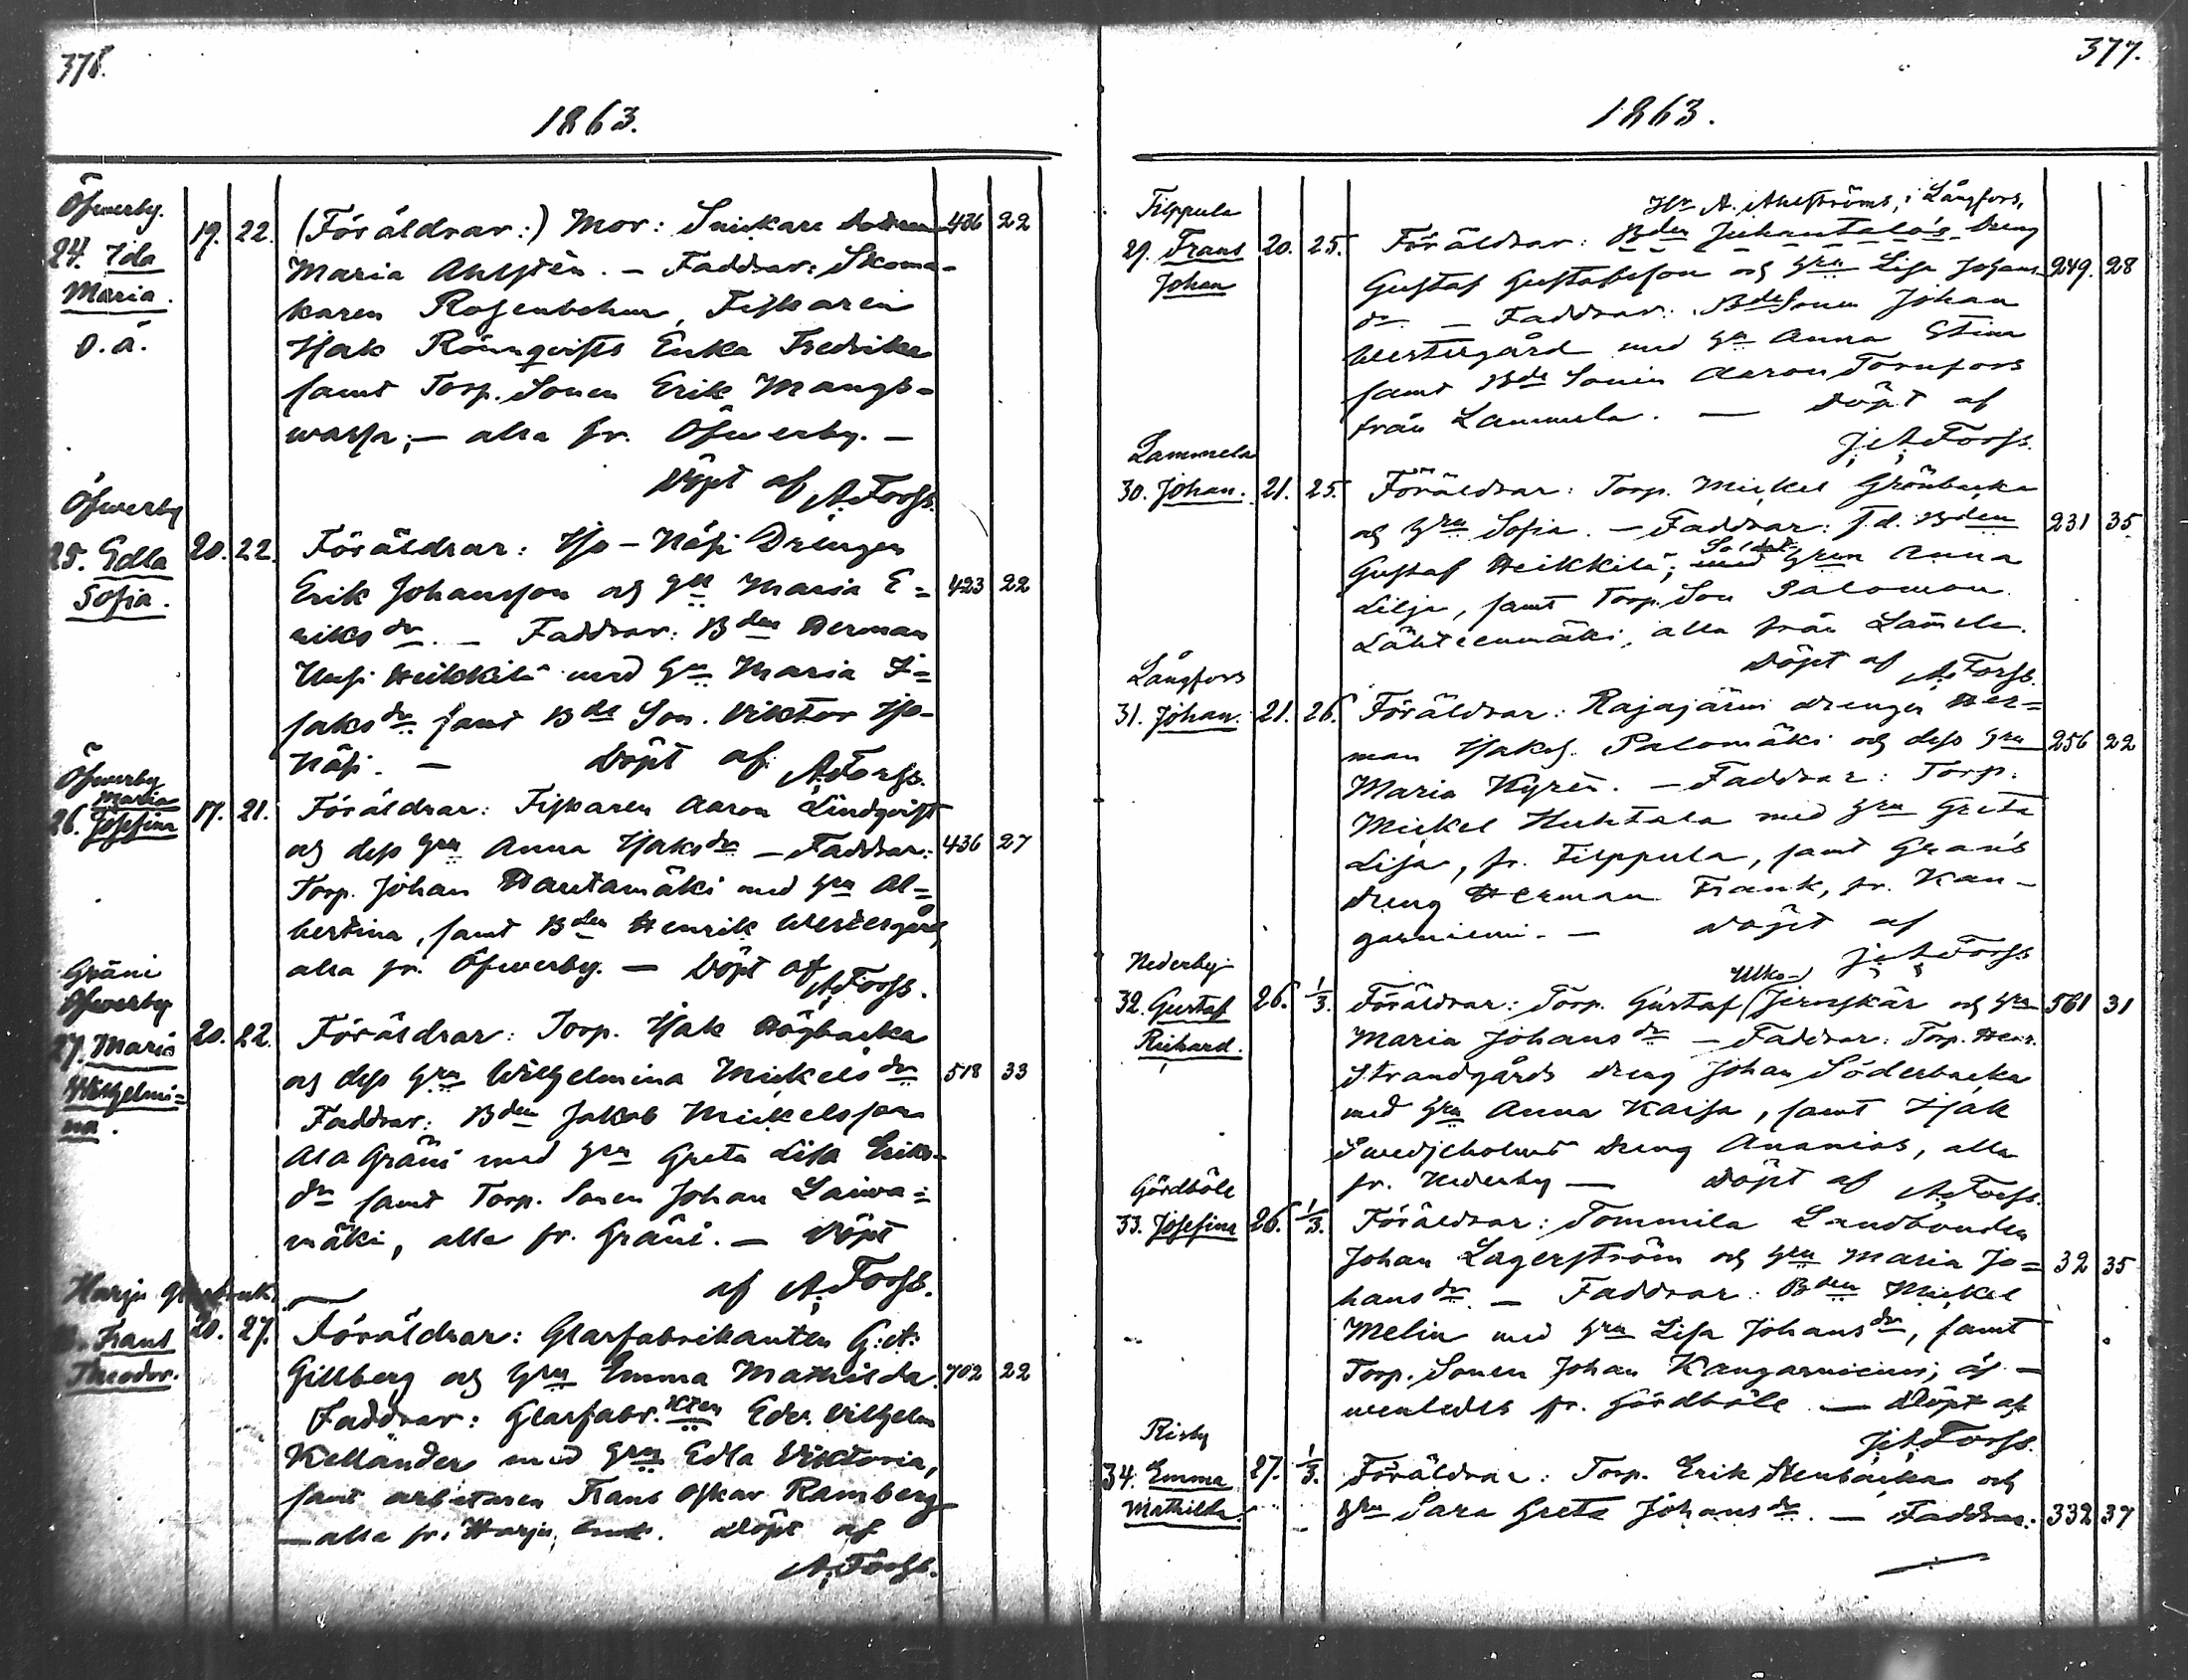 378.
1863.
Öfwerby.
24. Ida
Maria.
o.ä.
19. 22.
(Föräldrar:) Mor: Snickare
Maria Ahlstèn. — Faddrar: Skoma-
karen Rosenbohm, Fiskaren
Isak Rönnqvists Enka Fredrika
samt Torp. Sonen Erik Mangs-
warfa; — alla fr. Öfwerby. —
Döpt af A. Forss.
436 22
Öfwerby
25. Edla
Sofia.
20. 22.
Föräldrar: Iso-Näsi Drengen
Erik Johansson och Hu Maria E=
riksdr. — Faddrar: Bden Herman
Uusi Heikkilä med Hu Maria I=
saksdr samt Bde Son. Viktor Iso-
Näsi. — Döpt af A. Forss.
423 22
Öfwerby
Maria
26. Josefina
17. 21.
Föräldrar: Fiskaren Aaron Lindqvist
och dess Hru Anna Isaksdr — Faddrar:
Torp. Johan Hautamäki med Hru Al=
bertina, samt Bden Henrik Westergård,
alla fr. Öfwerby. — Döpt af
A. Forss.
436 27
Gräni
Öfwerby
27. Maria
Wilhelmi=
na.
20. 22.
Föräldrar: Torp. Isak Högbacka
och dess Hru Wilhelmina Mickelsdr
Faddrar: Bden Jakob Mickelsson
Ala Gräni med Hru Greta Lisa Eriks-
dr samt Torp. Sonen Johan Laiwa=
mäki, alla fr. Gräni. — Döpt
af A. Forss.
518 33
Harju Glasbruk.
Frans
Theodor.
20. 27.
Föräldrar: Glasfabrikanten G. A.
Gillberg och Hru Emma Mathilda.
Faddrar: Glasfabr. Edv. Vilhelm
Kelländer med Hru Edla Viktoria,
samt arbetaren Frans Oskar Ramberg
— alla fr. Harju bruk. Döpt af
A. Forss.
702 22
377.
1863.
Filppula
29. Frans
Johan
20. 25.
Hr A. Ahlströms, i Långfors,
Föräldrar: Bden Juhantalos Dreng
Gustaf Gustafsson och Hru Lisa Johans
dr. — Faddrar: Bde Sonen Johan
Westergård med Hu Anna Stina
samt Bde Sonen Aaron Tornfors
från Lammela. — Döpt af
J. A. Forss.
249. 28
Lammela
30. Johan.
21. 25.
Föräldrar: Torp. Mickel Grönbacka
och Hru Sofia. — Faddrar: f.d. Bden
Gustaf Heikkilä; Soldat Hren Anna
Lilja, samt Torp. Son Salomon
Lähteenmäki, alla från Lam̄ela.
Döpt af A. Forss.
231 35.
Långfors
31. Johan.
21. 26.
Föräldrar: Rajajärvi drengen Her=
man Isaks. Palomäki och dess Hru
Maria Kyrèn. — Faddrar: Torp.
Mickel Huhtala med Hru Greta
Lisa, fr. Filppula, samt Grans
dreng Herman Frank, fr. Kan-
garniemi. — Döpt af
J. A. Forss
256 22
Nederby
32. Gustaf
Richard.
26. 1/3.
Ulko-
Föräldrar: Torp. Gustaf (Jernskär och Hru
Maria Johansdr — Faddrar: Torp. Henr.
Strandgårds dreng Johan Söderbacka
med Hru Anna Kaisa, samt Isak
Swedjeholms dreng Ananias, alla
fr. Nederby — Döpt af A. Forss.
561 31
Gårdböle
33. Josefina
26. 1/3.
Föräldrar: Tommila Landbonden
Johan Lagerström och Hru Maria Jo=
hansdr. — Faddrar: Bden Mickel
Melin med Hru Lisa Johansdr, samt
Torp. Sonen Johan Kangarniemi; äf-
wenledes fr. Gårdböle. — Döpt af
J. A. Forss.
32 35
Risby
34. Emma
Mathilda.
27. 1/3.
Föräldrar: Torp. Erik Stenbacka och
Hru Sara Greta Johansdr. — Faddrar:
332 37